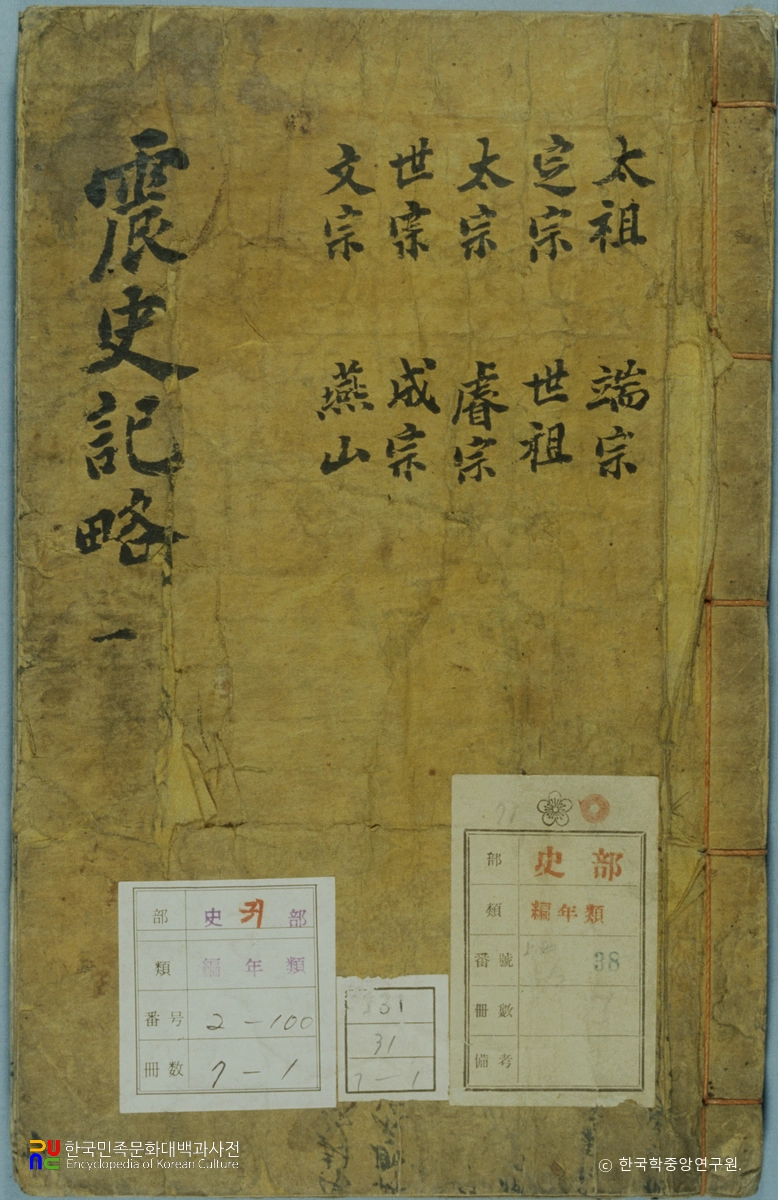 太祖 端宗
定宗 世祖
太宗 睿宗
世宗 成宗
文宗 燕山
震史記略 一
部 史 部
類 編年類
番號 38
冊數
備考
部 史 귀 部
類 編年類
番号 2-100
冊数 7-1
31
7-1
한국민족문화대백과사전
Encyclopedia of Korean Culture
© 한국학중앙연구원